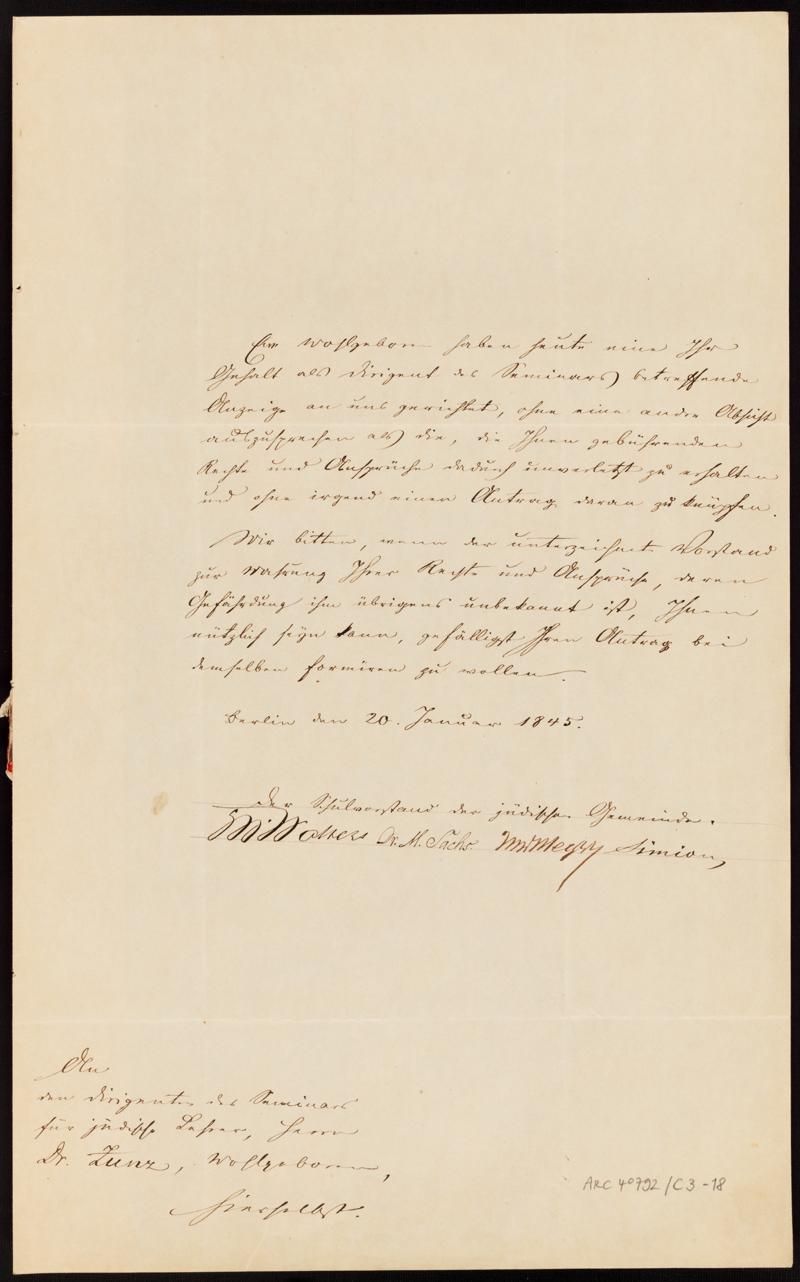 Ew Wohlgeboren haben heute eine Ihr
Gehalt als Dirigent des Seminars betreffende
Anzeige an uns gerichtet, ohne eine andre Absicht
auszusprechen als die, die Ihnen gebührenden
Rechte und Ansprüche dadurch unverletzt zu erhalten
und ohne irgend einen Antrag daran zu knüpfen.
Wir bitten, wenn der unterzeichnete Vorstand
zur Wahrung Ihrer Rechte und Ansprüche, deren
Gefährdung ihm übrigens unbekannt ist, Ihnen
nützlich seyn kann, gefälligst Ihren Antrag bei
demselben formiren zu wollen.
Berlin den 20. Januar 1845.
Der Schulvorstand der jüdischen Gemeinde.
Wolters Dr. M. Sachs. Simion,
An
den Dirigenten des Seminars
für jüdische Lehrer, Herrn
Dr. Zunz, Wohlgeboren,
hierselbst.
ARC 4° 792/C3-18